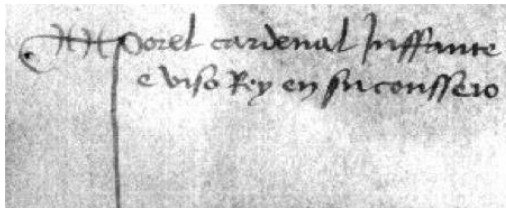 por el cardenal Inffante
e viso Rey en su conssero